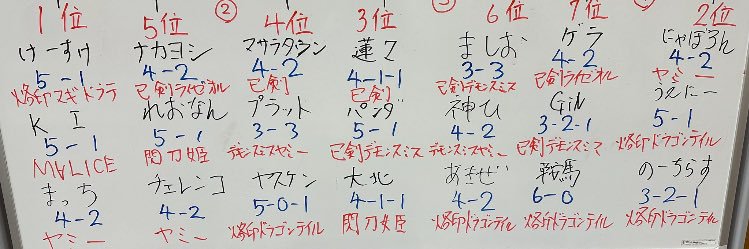 1位
けーすけ
5-1
烙印マギドラテ
K I
5-1
M∀LICE
まっち
4-2
ヤミー
5位
ナカヨシ
4-2
巳剣ライゼオル
れおなん
5-1
閃刀姫
チェレンコ
4-2
ヤミー
②
4位
マサラタウン
4-2
巳剣
プラット
3-3
デモンスミスヤミー
ヤスケン
5-0-1
烙印ドラゴンテイル
3位
蓮Z
4-1-1
巳剣
パンダ
5-1
巳剣デモンスミス
大北
4-1-1
閃刀姫
6位
ましお
3-3
巳剣デモンスミス
神ひ
4-2
デモンスミスヤミー
4-2
烙印ドラゴンテイル
7位
ゲラ
4-2
巳剣ライゼオル
3-2-1
巳剣デモンスミス
鞍馬
6-0
烙印ドラゴンテイル
2位
にゃぽろん
4-2
ヤミー
うえにー
5-1
烙印ドラゴンテイル
のーちらす
3-2-1
烙印ドラゴンテイル